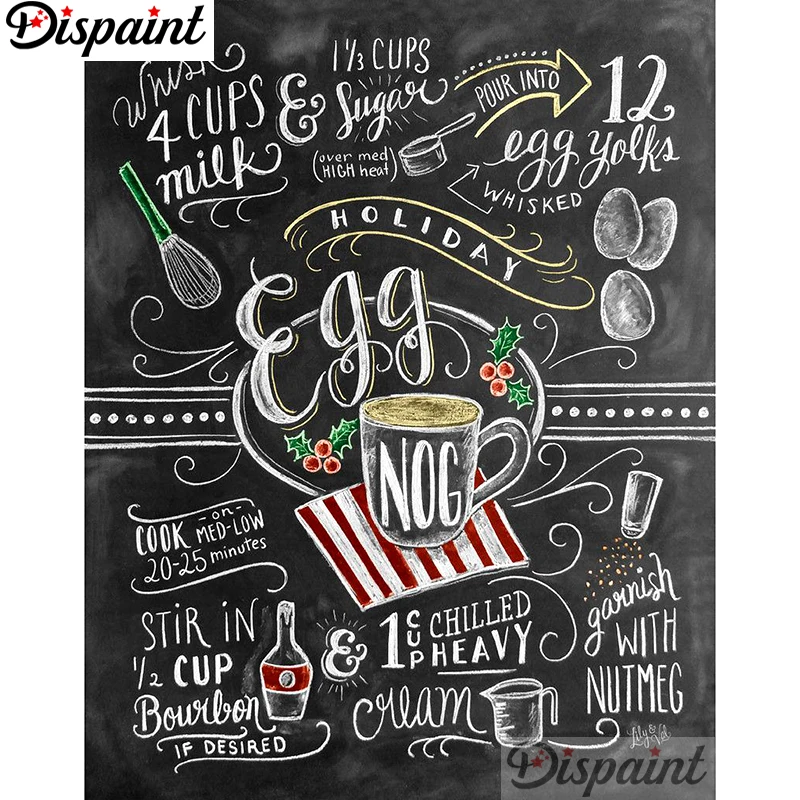 Dispaint
Whisk
4 CUPS
milk
&
1 1/3 CUPS
Sugar
(over med
HIGH heat)
POUR INTO
12
egg yolks
WHISKED
HOLIDAY
Egg
NOG
COOK -on- MED-LOW
20-25 minutes
STIR IN
1/2 CUP
Bourbon
IF DESIRED
&
1 CUP CHILLED
HEAVY
cream
garnish
WITH
NUTMEG
Lily & Val
Dispaint